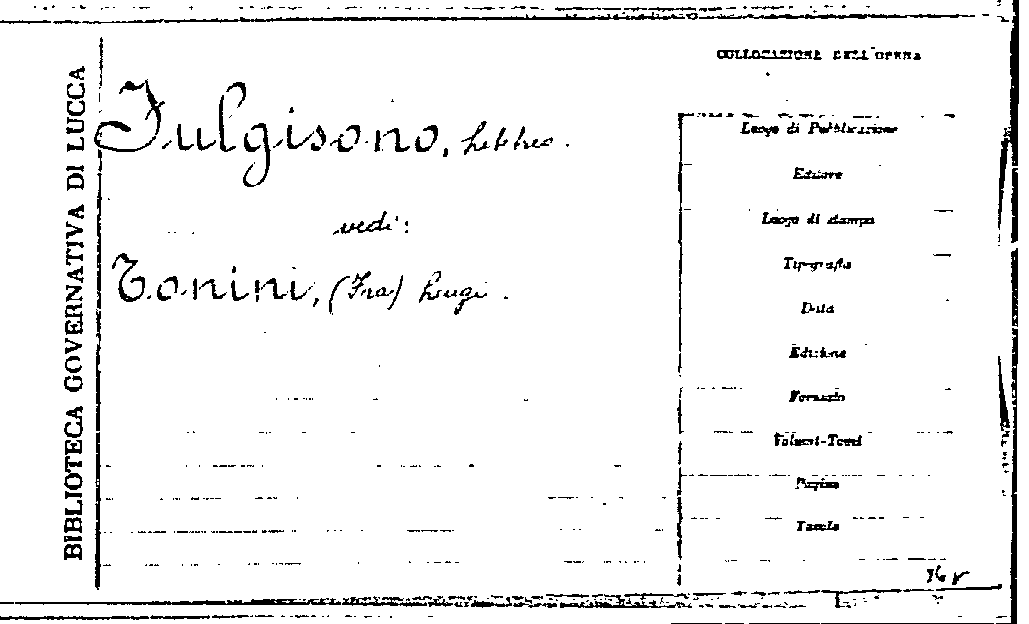 BIBLIOTECA GOVERNATIVA DI LUCCA
COLLOCAZIONE DELL'OPERA
Fulgisono,
vedi:
Tonini, (Fra) Luigi.
Luogo di Pubblicazione
Editore
Luogo di stampa
Tipografia
Data
Edizione
Formato
Volumi-Tomi
Pagine
Tavole